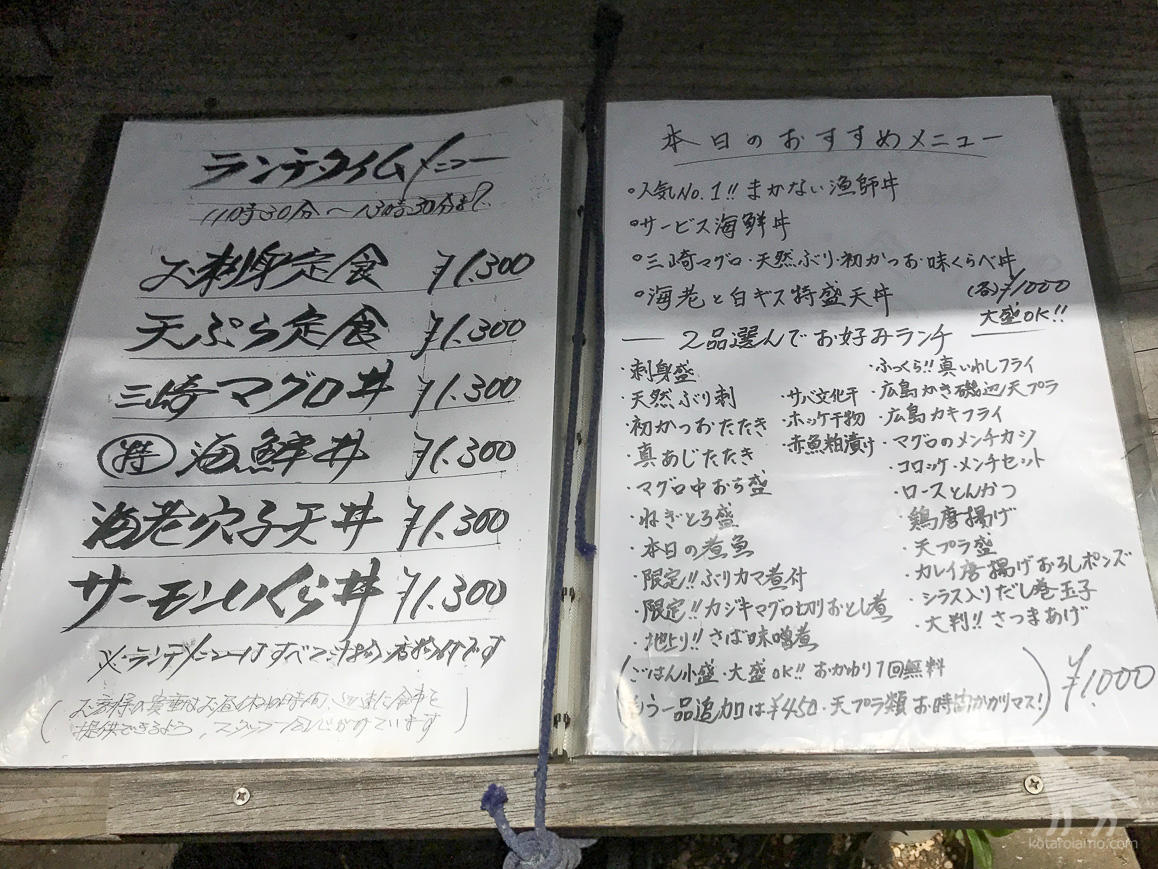 ランチタイムメニュー
11時30分〜13時30分まで
お刺身定食 ¥1.300
天ぷら定食 ¥1.300
三崎マグロ丼 ¥1.300
特 海鮮丼 ¥1.300
海老穴子天丼 ¥1.300
サーモンいくら丼 ¥1.300
※ランチメニューはすべて
お客様の貴重なお昼休み時間、迅速に食事を
提供できるよう、スタッフ一同心がけています
本日のおすすめメニュー
○人気No.1!!まかない漁師丼
○サービス海鮮丼
○三崎マグロ・天然ぶり・初かつお・味くらべ丼
○海老と白キス特盛天丼 (各)¥1000
大盛OK!!
2品選んでお好みランチ
・刺身盛
・天然ぶり刺
・初かつおたたき
・真あじたたき
・マグロ中おち盛
・ねぎとろ盛
・本日の煮魚
・限定!!ぶりカマ煮付
・限定!!カジキマグロ切りおとし煮
・地上り!!さば味噌煮
・サバ文化干
・ホッケ干物
・赤魚粕漬け
・ふっくら!!真いわしフライ
・広島かき磯辺天プラ
・広島カキフライ
・マグロのメンチカツ
・コロッケ・メンチセット
・ロースとんかつ
・鶏唐揚げ
・天プラ盛
・カレイ唐揚げおろしポンズ
・シラス入りだし巻玉子
・大判!!さつまあげ
(ごはん小盛・大盛OK!! おかわり1回無料
もう一品追加は¥450・天プラ類お時間かかりマス!) ¥1.000
kotarolaimo.com